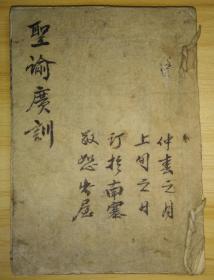 聖諭廣訓
仲春之月
上旬之日
訂於南寨
敬恕堂屋